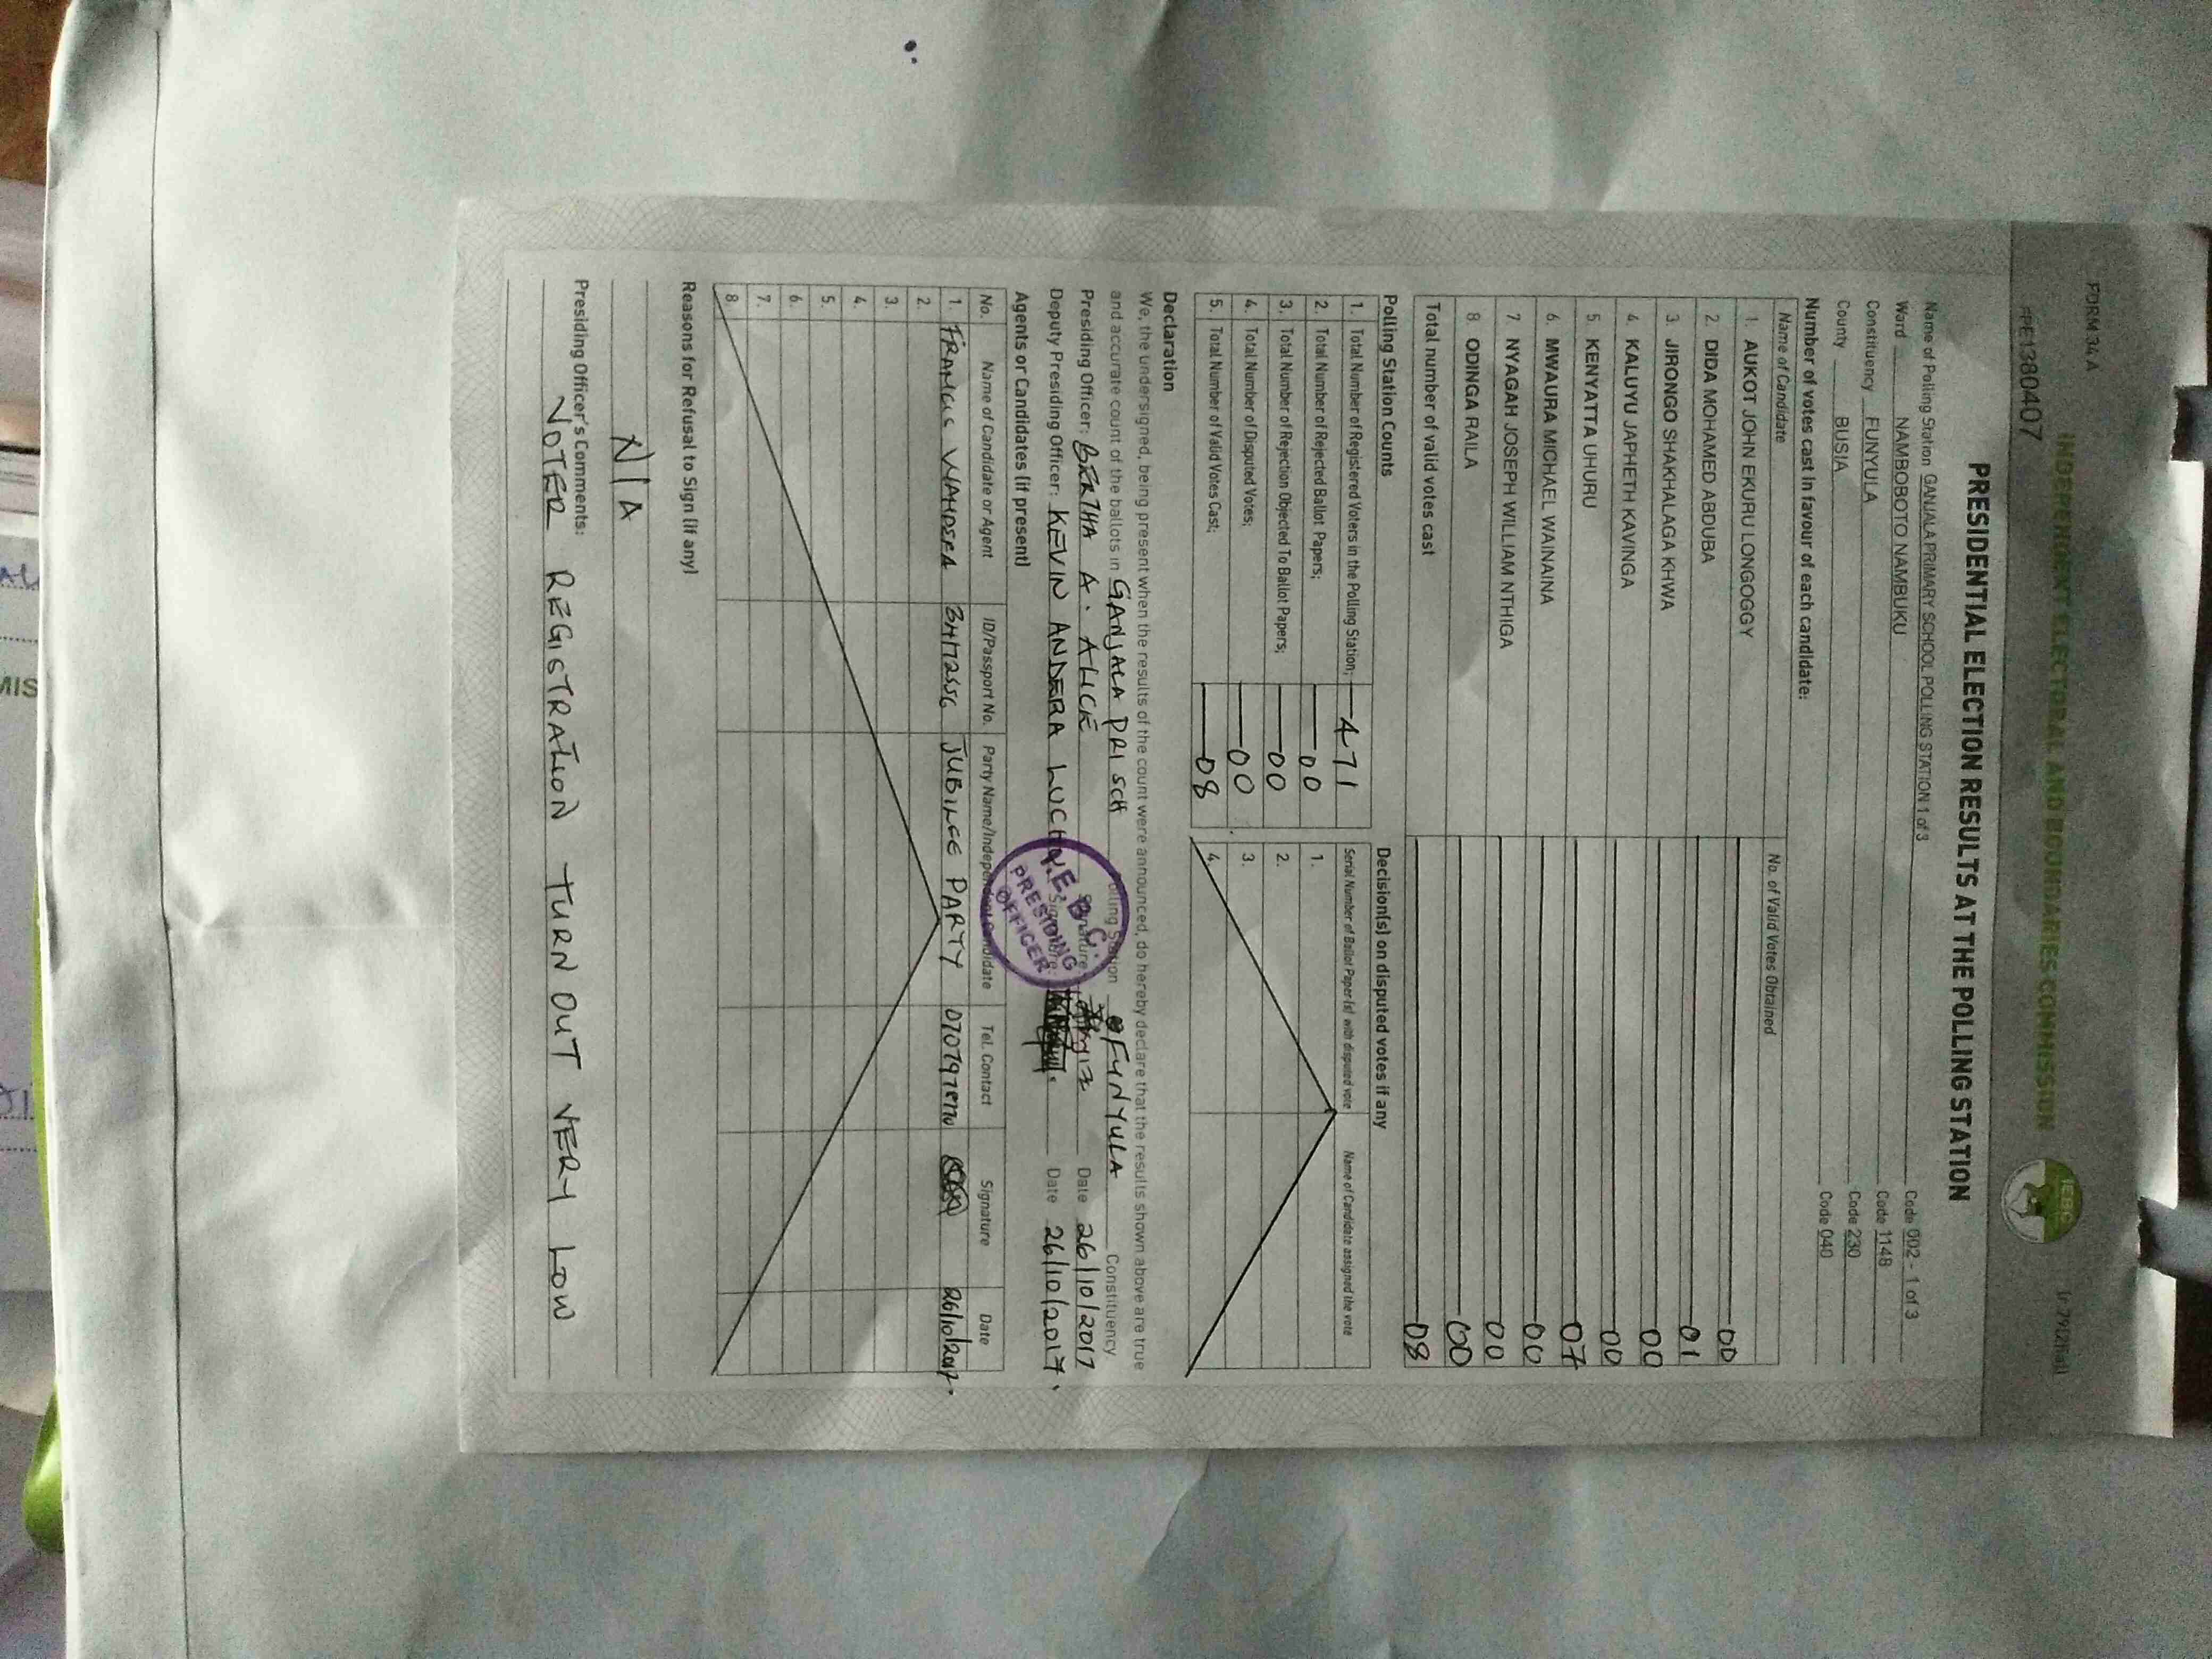 FORM 34 A
(r. 79(2)(a))
INDEPENDENT ELECTORAL AND BOUNDARIES COMMISSION
IEBC
PRESIDENTIAL ELECTION RESULTS AT THE POLLING STATION
Name of Polling Station GANJALA PRIMARY SCHOOL POLLING STATION 1 of 3 Code 002 - 1 of 3
Ward NAMBOBOTO NAMBUKU Code 1148
Constituency FUNYULA Code 230
County BUSIA Code 040
Number of votes cast in favour of each candidate:
Name of Candidate No. of Valid Votes Obtained
1. AUKOT JOHN EKURU LONGOGGY 00
2. DIDA MOHAMED ABDUBA 01
3. JIRONGO SHAKHALAGA KHWA 00
4. KALUYU JAPHETH KAVINGA 00
5. KENYATTA UHURU 07
6. MWAURA MICHAEL WAINAINA 00
7 NYAGAH JOSEPH WILLIAM NTHIGA 00
8 ODINGA RAILA 00
Total number of valid votes cast 08
Polling Station Counts
1. Total Number of Registered Voters in the Polling Station; 471
2. Total Number of Rejected Ballot Papers; 00
3. Total Number of Rejection Objected To Ballot Papers; 00
4. Total Number of Disputed Votes; 00
5. Total Number of Valid Votes Cast; 08
Decision(s) on disputed votes if any
Serial Number of Ballot Paper (s) with disputed vote Name of Candidate assigned the vote
1.
2.
3.
4.
Declaration
We, the undersigned, being present when the results of the count were announced, do hereby declare that the results shown above are true
and accurate count of the ballots in GANJALA PRI SCH Polling Station FUNYULA Constituency
Presiding Officer: BERTHA A. ALICE Signature Date 26/10/2017
Deputy Presiding Officer: KEVIN ANDERA Signature: Date 26/10/2017.
I.E.B.C.
PRESIDING
OFFICER
Agents or Candidates (if present)
No. Name of Candidate or Agent ID/Passport No. Party Name/Independent Candidate Tel. Contact Signature Date
1. FRANCIS JUBILEE PARTY 26/10/2017.
2.
3.
4.
5.
6.
7.
8
Reasons for Refusal to Sign (if any)
N/A
Presiding Officer's Comments:
VOTER REGISTRATION TURN OUT VERY LOW